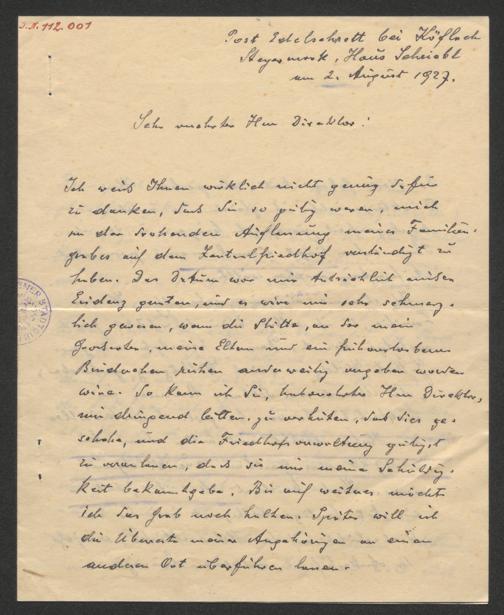 J.N. 112.001
Post Edelschrott bei Köflach
Steyermark, Haus Schriebl
am 2. August 1927.
Sehr verehrter Herr Direktor!
Ich weiß Ihnen wirklich nicht genug dafür
zu danken, daß Sie so gütig waren, mich
von der drohenden Auflassung meines Familien-
grabes auf dem Zentralfriedhof verständigt zu
haben. Das Datum war mir tatsächlich außer
Evidenz geraten, und es wäre mir sehr schmerz-
lich gewesen, wenn die Stätte, an der mein
Großvater, meine Eltern und ein frühverstorbenes
Brüderchen ruhen anderweitig vergeben worden
wäre. So kann ich Sie, hochverehrter Herr Direktor,
nur dringend bitten, zu verhüten, daß dies ge-
schehe, und die Friedhofsverwaltung gütigst
zu veranlassen, daß sie mir meine Schuldig-
keit bekanntgebe. Bis auf weiteres möchte
ich das Grab noch halten. Später will ich
die Überreste meiner Angehörigen an einen
anderen Ort überführen lassen.